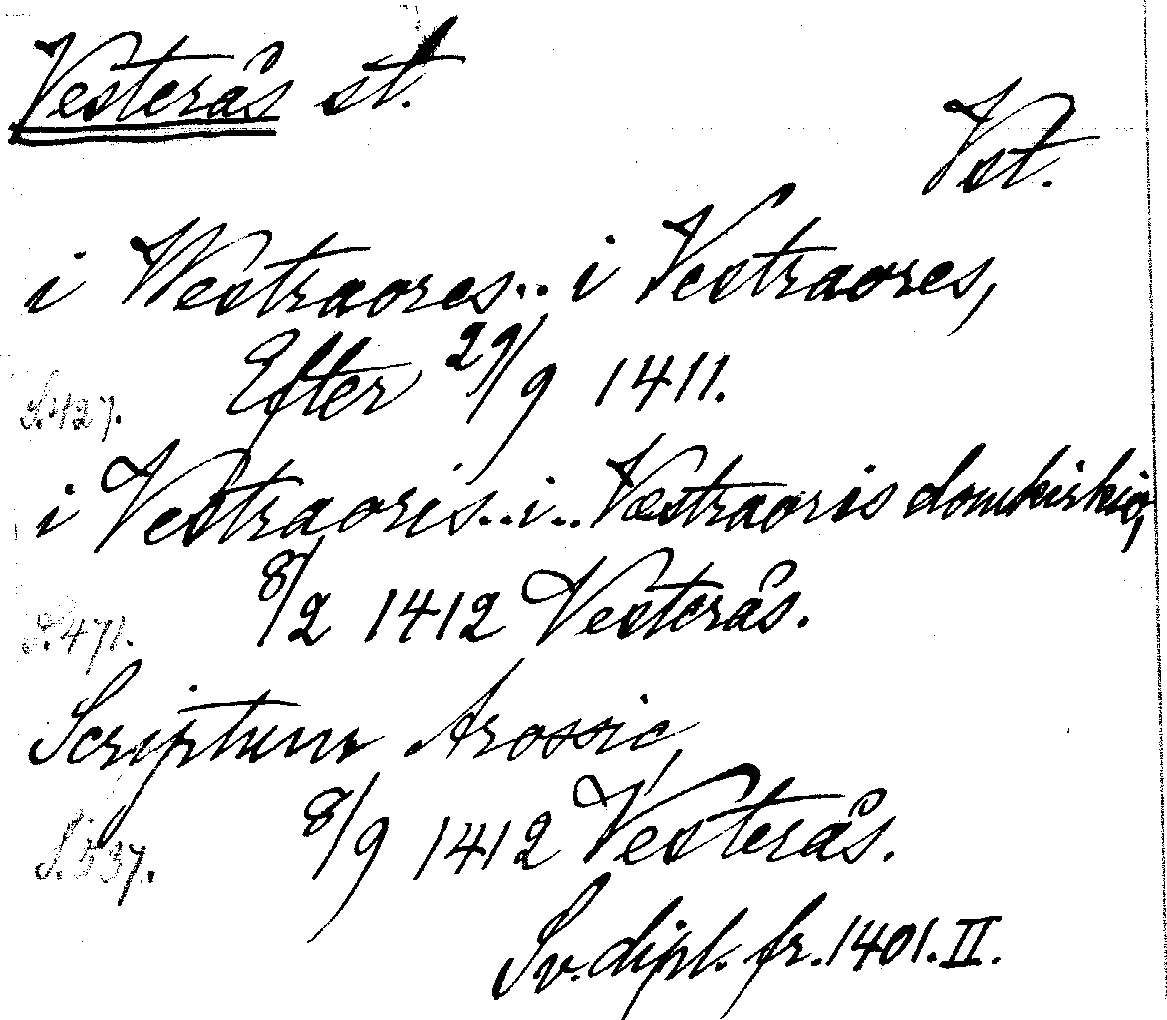 Vesterås st.
Vst.
i Westraores.. i Vestraores,
Efter 29/9 1411.
S. 427.
i Vestraoris..i.. Væstraoris domkirkio,
8/2 1412 Vesterås.
S. 471.
Scriptum Arossie,
8/9 1412 Vesterås.
S. 537.
Sv. dipl. fr. 1401. II.